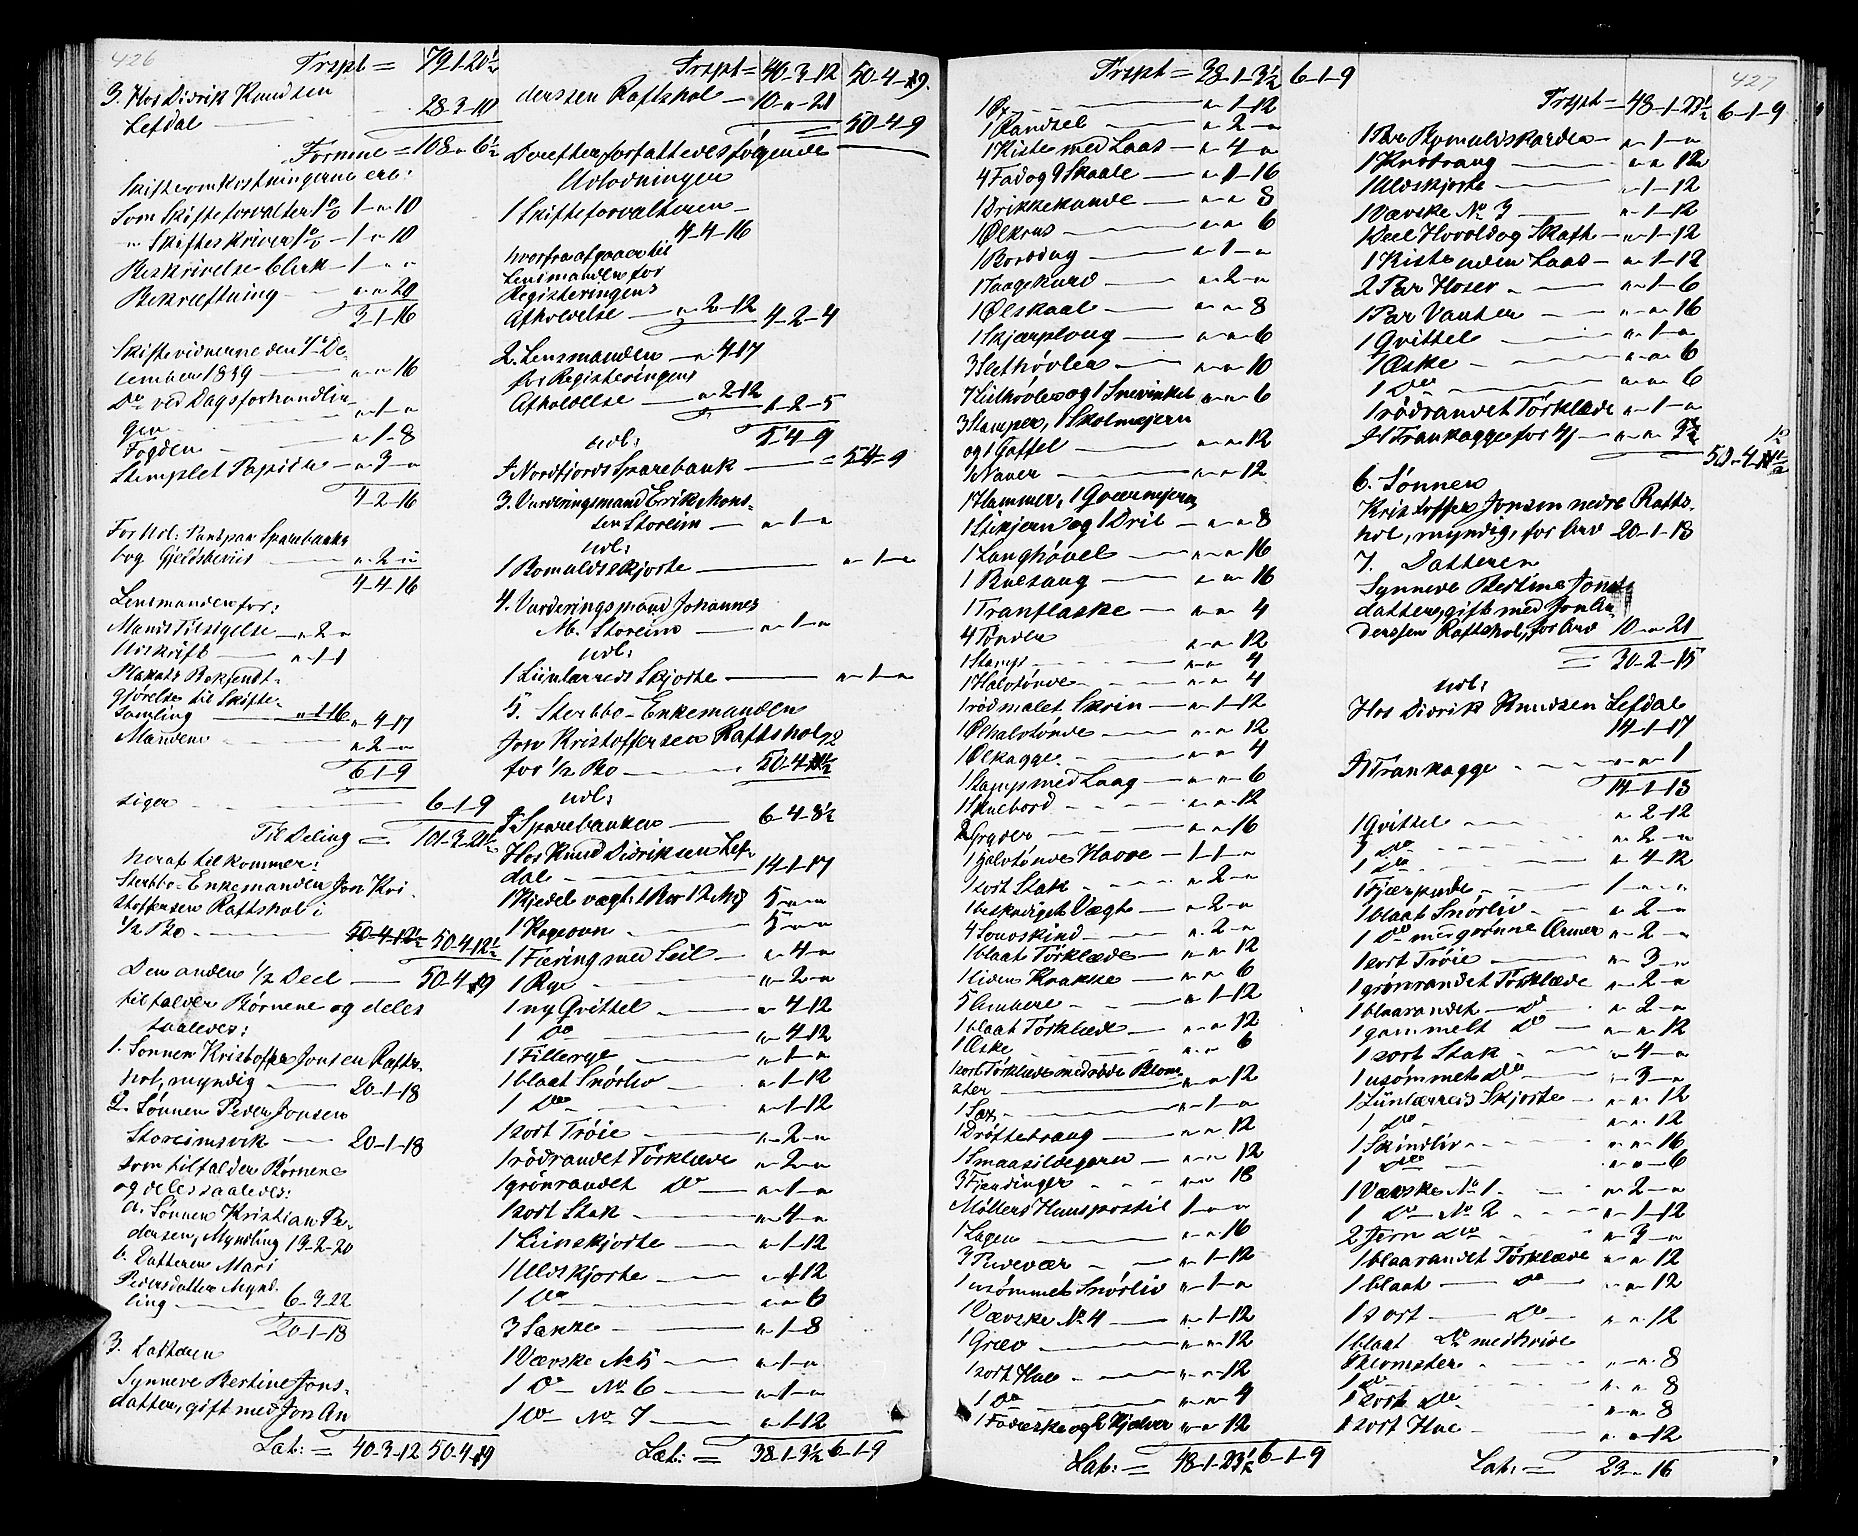 426
Trspt = 79-1-20½
3. Hos Didrik Knudsen
Lefdal — 28-3-10
Formue = 108 „ 6½
Skifteomkostningerne ere:
Som Skifteforvalter 1% 1-„-10
„ Skifteskriver 1% — 1-„-10
Beskrivelse 6 Ark — 1-„-„
Bekræftning — „-„-20
3-1-16
Skiftevidnerne den 7de De-
cember 1839 — „-„-16
Do ved Dagsforhandlin-
gen — „-1-„
Fogden — „-1-8
Stemplet Papir — „-3-„
4-2-16
bog Gjeldsbeviis — „-2-„
4-4-16
Lensmanden for:
Mands Tilsigelse — „-2-„
Udskrift — „-1-1
gjørelse til Skifte-
samling — „-1-16 „-4-17
Mændene — „-2-„
6-1-9
siger — 6-1-9
Til Deling = 101-3-21½
heraf tilkommer:
Sterbbo-Enkemanden Jon Kri-
stoffersen Raftshol i
½ Bo — 50-4-12½ 50-4-12½
Den anden ½ Deel — 50-4-9
tilfalder Börnene og deles
saaledes:
1. Sønnen Kristoffer Jonsen Rafts-
hol, myndig — 20-1-18
2. Sønnen Peder Jonsen
Storeimsvik — 20-1-18
som tilfalder Börnene
og deles saaledes:
a. Sønnen Kristian Pe-
dersen, Myndling 13-2-20
b. Datteren Mari
Pedersdatter Mynd-
ling — 6-3-22
20-1-18
3. Datteren
Synneve Bertine Jons-
datter, gift med Jon An
Lat: = 40-3-12 50-4-9
Trspt = 40-3-12 50-4-9.
derssen Raftshol — 10-„-21
= 50-4-9
Derefter forfattedes følgende
Udlodninger
1 Skifteforvalteren —
4-4-16
hvorfra afgaaer til
Lensmanden for
Registeringens
Afholdelse — „-2-12 4-2-4
2. Lensmanden — „-4-17
for Registeringens
Afholdelse — „-2-12
1-2-5
5-4-9
udl:
I Nordfjords Sparebank — = 5-4-9
3. Vurderingsmand Erik Mons-
sen Storeim — „-1-„
udl:
1 Bomuldsskjorte — „-1-„
4. Vurderingsmand Johannes
M. Storeim — „-1-„
udl:
1 Liinlærreds Skjorte — „-1-„
5. Sterbbo-Enkemanden
Jon Kristoffersen Raftshol
for ½ Bo — 50-4-12½
udl:
I Sparebanken — 6-4-8½
Hos Knud Didriksen Lef-
dal — 14-1-17
1 Kjedel vægt. 1 Bpd 12 Mk 5-„-„
1 Kogeovn — 5-„-„
1 Færing med Seil — „-4-„
1 Rye — „-2-„
1 ny Qvittel — „-4-12
1 Do — „-4-12
1 Fillerye — „-1-„
1 blaat Snörliv — „-1-12
1 Do — „-1-12
1 sort Tröie — „-2-„
1 rödrandet Törklæde „-2-„
1 grönrandet Do — „-1-„
1 sort Stak — „-4-„
1 Liinskjorte — „-1-12
1 Uldskjorte — „-1-12
1 Do — „-„-6
3 Sække — „-1-8
1 Værske No 5 — „-1-„
1 Do No 6 — „-1-„
1 Do No 7 — „-1-12
Lat: = 38-1-3½ 6-1-9
Trspt = 38-1-3½ 6-1-9
1 Øx — „-1-12
1 Randsel — „-2-„
1 Kiste med Laas — „-4-„
4 Fad og 9 Skaale — „-1-16
1 Drikkekande — „-„-8
1 Ølkrus — „-„-6
1 Borddug — „-1-„
1 Taagekurv — „-2-„
1 Ølskaal — „-„-8
1 Skjærploug — „-„-6
3 Slethøvler — „-„-10
7 Listhøvler og 1 Snevinkel „-„-6
3 Stamper, 1 Skolmejern
og 1 Gaffel — „-„-12
4 Naver — „-„-12
1 Hammer, 1 Gværmejern
1 Stikjern og 1 Dril — „-„-8
1 Langhøvel — „-„-16
1 Buesaug — „-„-16
1 Tranflaske — „-„-4
4 Tønder — „-„-12
1 Stamp — „-„-4
1 Halvtönde — „-„-4
1 röd malet Skrin — „-1-12
1 Ølhalvtönde — „-„-12
1 Ølkagge — „-„-4
1 Stamp med Laag — „-„-6
1 Skuebord — „-„-12
2 Gryder — „-„-16
1 Halvtønde Havre — 1-1-„
1 sort Stak — „-2-„
1 beskadiget Vægt — „-2-„
4 Soueskind — „-2-„
1 blaat Törklæde — „-„-12
1 liden Krakke — „-„-6
5 Ambere — „-1-12
1 blaat Törklæde — „-„-12
1 Æske — „-„-6
1 sort Törklæde med röde Blom-
ster — „-„-12
1 Sax — „-1-„
1 Dröftetraug — „-„-12
1 Smaasildegarn — „-„-12
3 Fjendinger — „-„-18
Møllers Huuspostil 1-„-„
1 Lagen — „-„-16
3 Pudevær — „-1-12
1 usömmet Snörliv — „-1-„
1 Værske No 4 — „-1-12
1 Græv — „-„-12
1 sort Hue — „-„-12
1 Do — „-„-4
1 Fodæske og 2 Hjelver „-„-12
Lat: = 48-1-23½ 6-1-9
427
Trspt = 48-1-23½ 6-1-9
1 Par Bomuldskarder — „-1-„
1 Knötraug — „-„-12
1 Uldskjorte — „-1-12
1 Værske No 3 — „-1-12
1 Deel Hovold og Skaft — „-1-12
1 Kiste uden Laas — „-1-12
2 Par Hoser — „-1-6
1 Par Vanter — „-„-16
1 Qvittel — „-1-„
1 Æske — „-„-6
1 Do — „-„-6
1 rödrandet Törklæde „-1-„
I 1 Trankagge for 4/ — „-„-3½
50-4-12½
6. Sønnen
Kristoffer Jonsen nedre Rafts-
hol, myndig, for Arv 20-1-18
7. Datteren
Synneve Bertine Jons-
datter, gift med Jon An
derssen Raftshol, for Arv 10-„-21
= 30-2-15
udl:
Hos Didrik Knudsen Lefdal
14-1-17
I 1 Trankagge — „-„-1
14-1-18
1 Qvittel — „-2-12
1 Do — „-2-„
1 Do — „-4-12
1 Fjærpude — 1-„-„
1 blaat Snörliv — „-2-„
1 Do med grönne Ærmer „-2-„
1 sort Tröie — „-3-„
1 grönrandet Törklæde „-2-„
1 blaarandet — Do — „-2-„
1 gammelt Do — „-„-12
1 sort Stak — „-4-„
1 usömmet Do — „-3-„
1 Liinlærreds Skjorte — „-„-12
1 Do — „-„-12
1 Skindliv — „-„-16
1 Do — „-„-6
1 Værske No 1. — „-2-„
1 Do No 2 — „-1-12
2 Jern Do — „-3-„
1 blaarandet Törklæde „-„-12
1 blaat — Do — „-„-12
1 sort — Do — „-„-12
1 blaat Do med hvide
Blomster — „-„-8
1 Do — „-„-8
1 sort Do — „-„-8
1 sort Hue — „-„-12
Lat: = 23-„-16